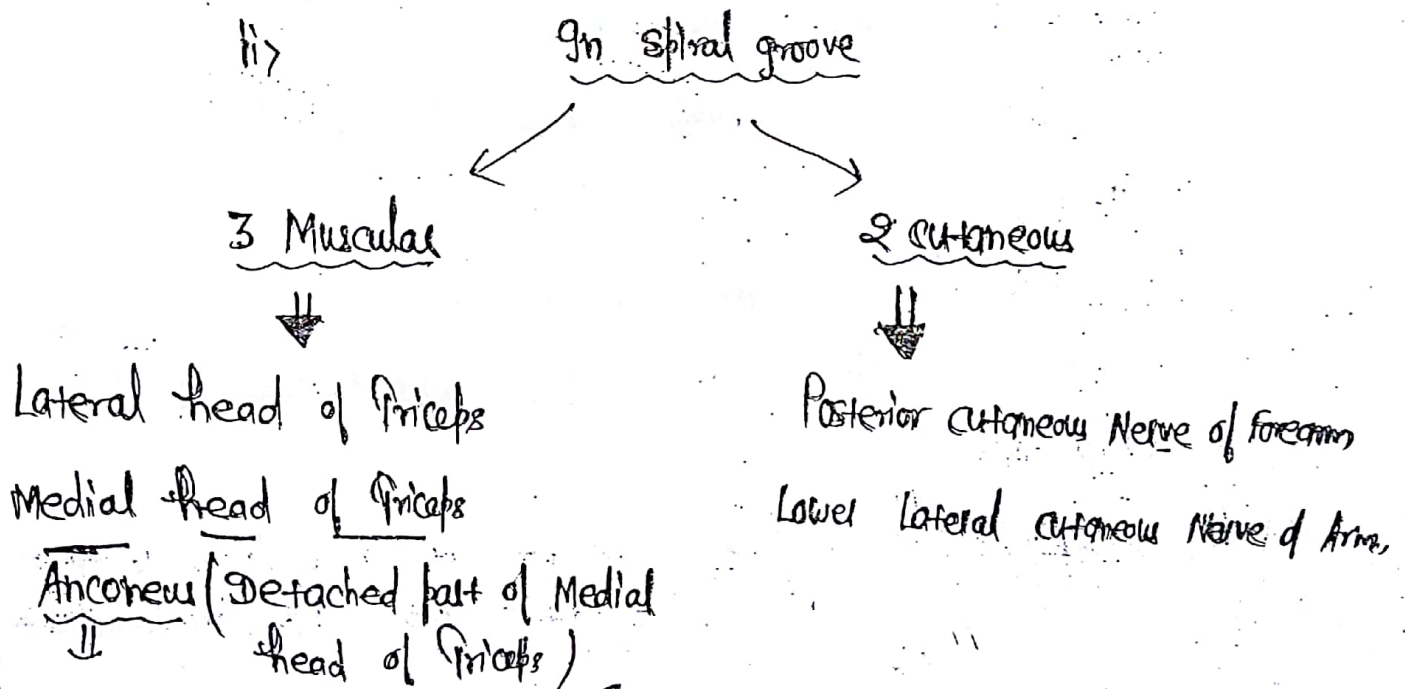 ii>
In spiral groove
3 Muscular
2 cutaneous
Lateral head of Triceps
Medial head of Triceps
Anconeus (Detached part of Medial
head of Triceps)
Posterior cutaneous Nerve of forearm
Lower Lateral cutaneous Nerve of Arm.